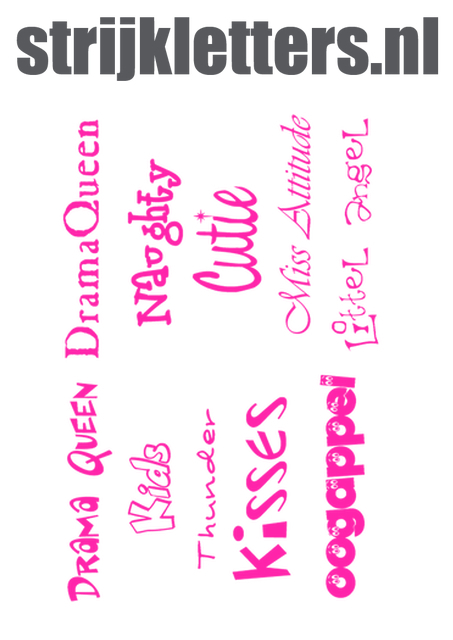 strijkletters.nl
DramaQueen
Naughty
Cutie
Miss Attitude
Littel angel
Drama Queen
Kids
Thunder
kisses
oogappel